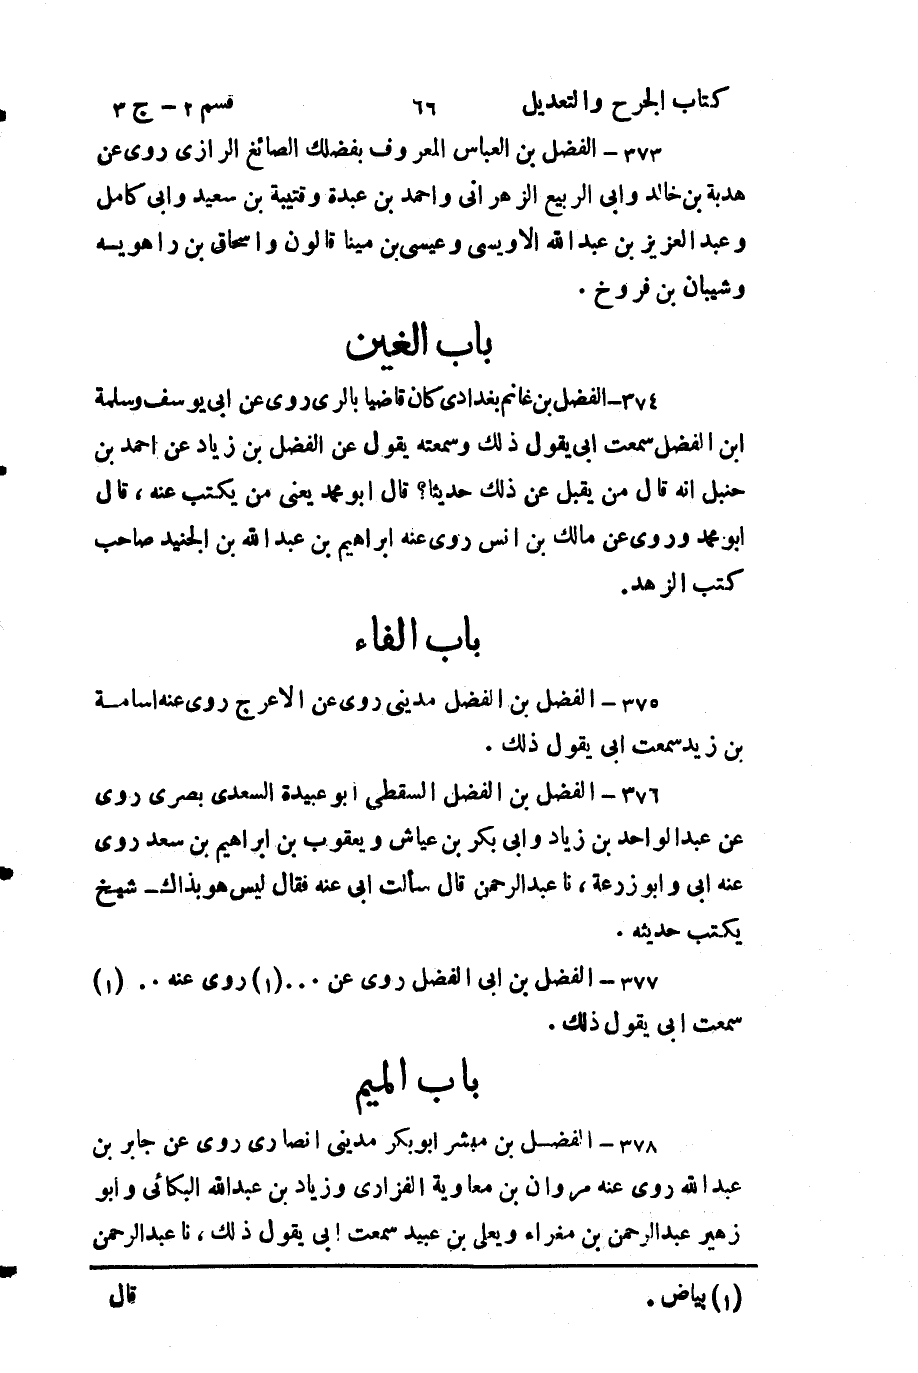 كتاب الجرح والتعديل ٦٦ قسم ٢ – ج ٣
٣٧٣ – الفضل بن العباس المعروف بفضلك الصائغ الرازى روى عن
هدبة بن خالد وابى الربيع الزهرانى واحمد بن عبدة وقتيبة بن سعيد وابى كامل
وعبد العزيز بن عبد الله الاويسى وعيسى بن مينا قالون واسحاق بن راهويه
وشيبان بن فروخ .
باب الغين
٣٧٤ – الفضل بن غانم بغدادى كان قاضيا بالرى روى عن ابى يوسف وسلمة
ابن الفضل سمعت ابى يقول ذلك وسمعته يقول عن الفضل بن زياد عن احمد بن
حنبل انه قال من يقبل عن ذلك حديثا؟ قال ابو محمد يعنى من يكتب عنه ، قال
ابو محمد وروى عن مالك بن انس روى عنه ابراهيم بن عبد الله بن الجنيد صاحب
كتب الزهد.
باب الفاء
٣٧٥ – الفضل بن الفضل مدينى روى عن الاعرج روى عنه اسامة
بن زيد سمعت ابى يقول ذلك .
٣٧٦ – الفضل بن الفضل السقطى ابو عبيدة السعدى بصرى روى
عن عبد الواحد بن زياد وابى بكر بن عياش ويعقوب بن ابراهيم بن سعد روى
عنه ابى وابو زرعة ، نا عبد الرحمن قال سألت ابى عنه فقال ليس هو بذاك – شيخ
يكتب حديثه .
٣٧٧ – الفضل بن ابى الفضل روى عن ...(١) روى عنه .. (١)
سمعت ابى يقول ذلك .
باب الميم
٣٧٨ – الفضل بن مبشر ابو بكر مدينى انصارى روى عن جابر بن
عبد الله روى عنه مروان بن معاوية الفزارى وزياد بن عبد الله البكائى وابو
زهير عبد الرحمن بن مغراء ويعلى بن عبيد سمعت ابى يقول ذلك ، نا عبد الرحمن
(١) بياض . قال